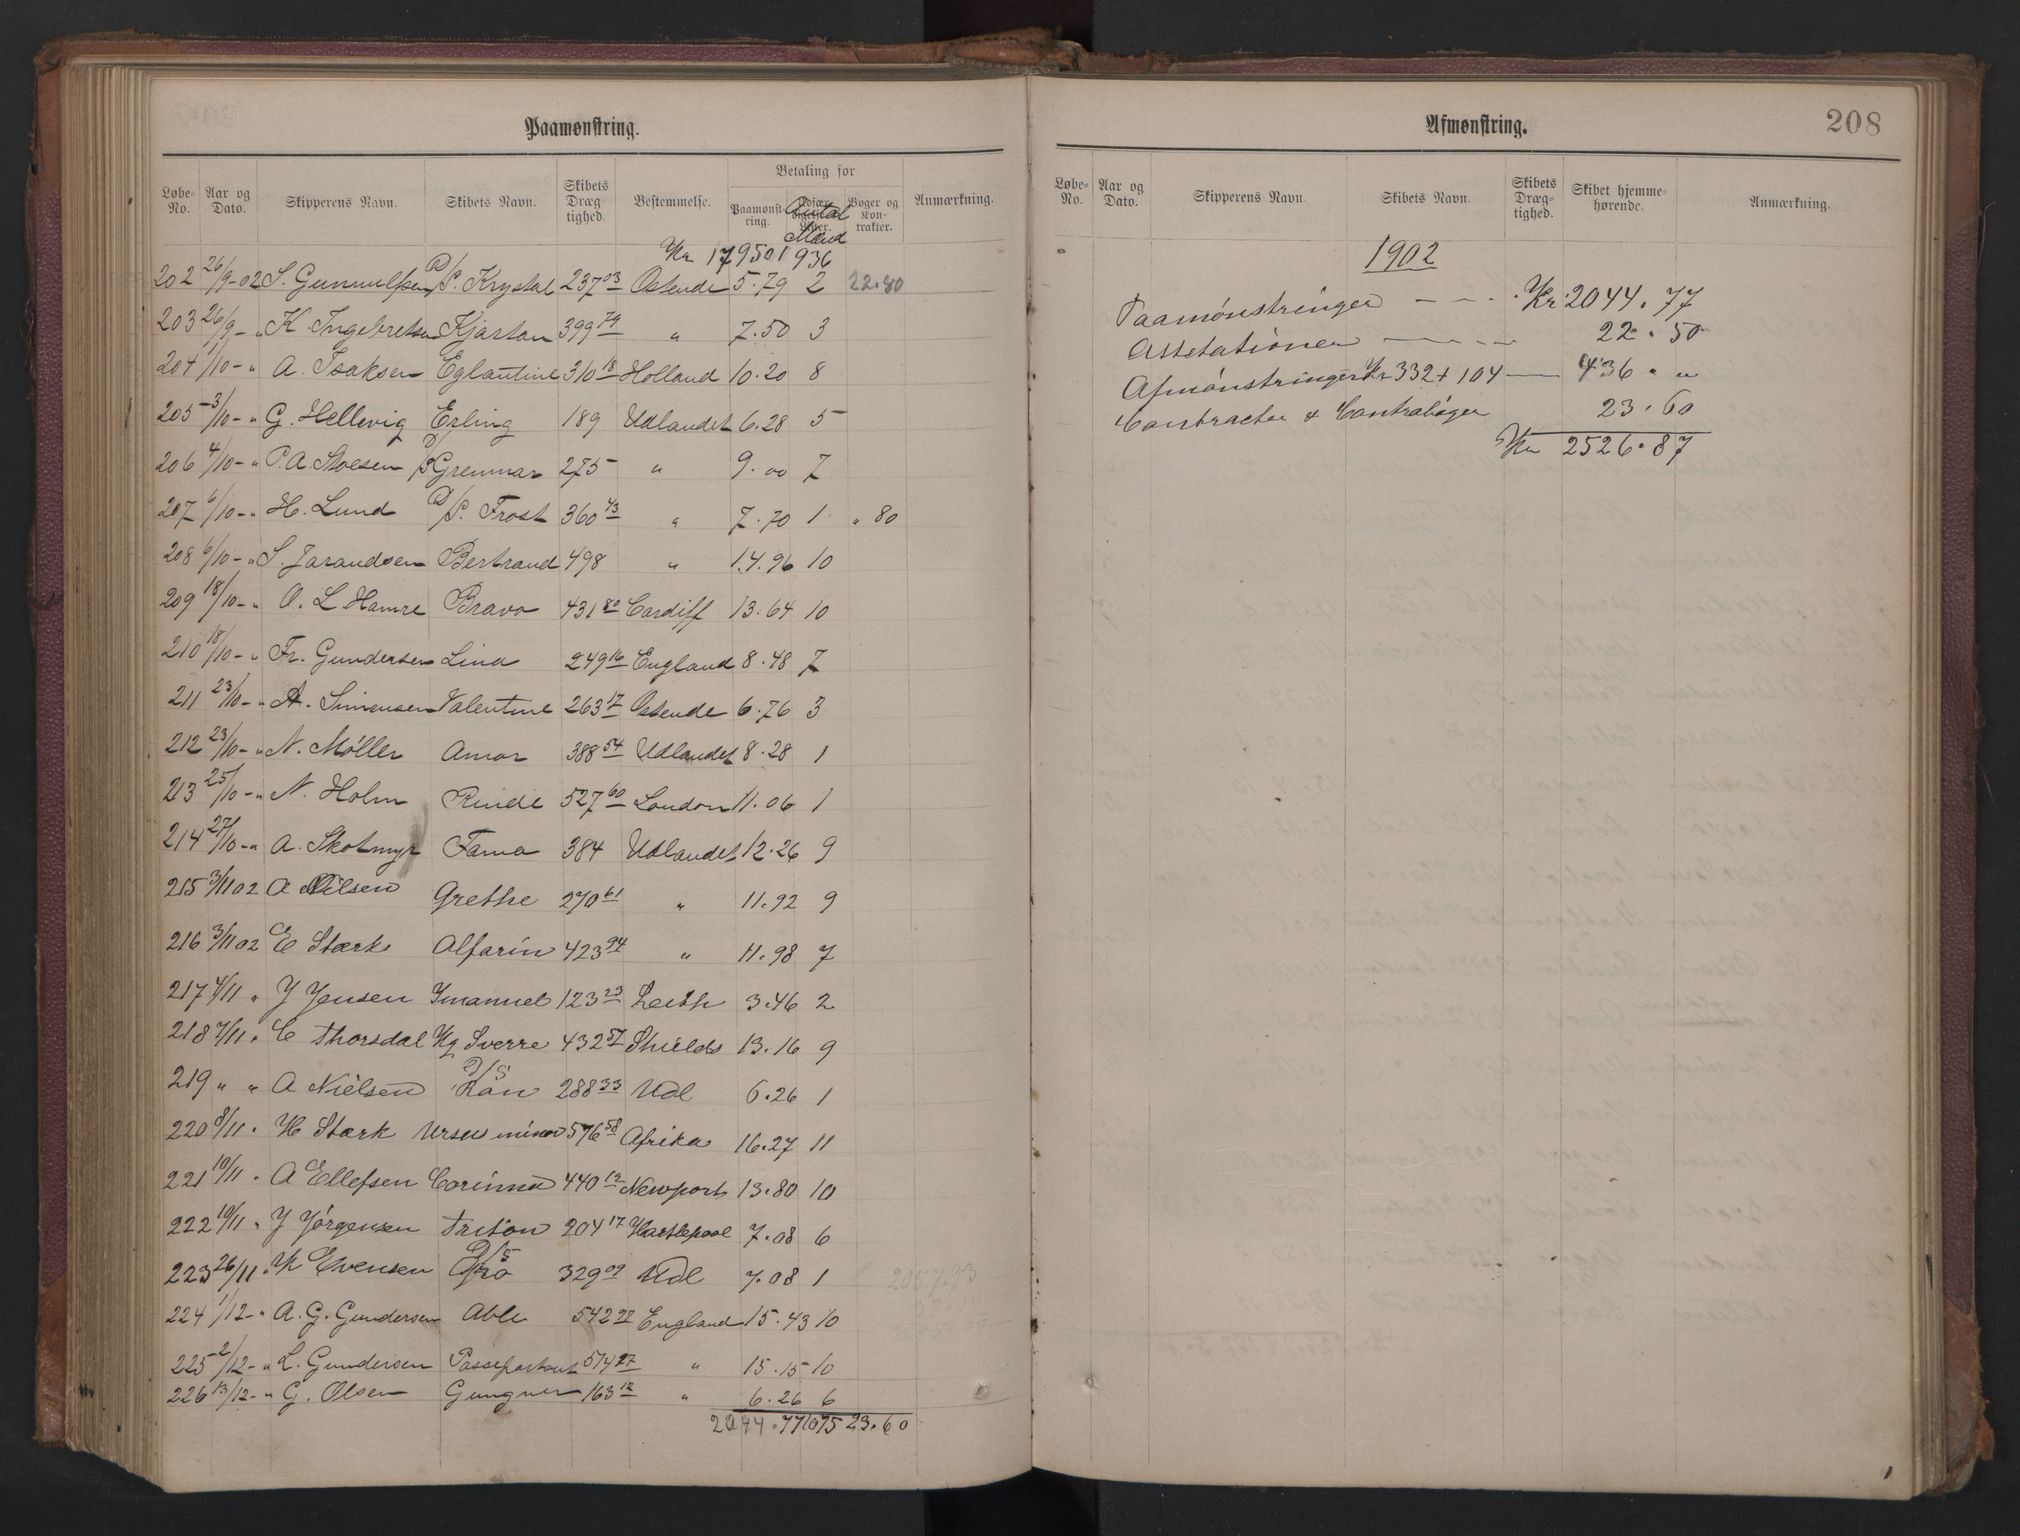 Paamønstring.
Løbe-No. Aar og Dato. Skipperens Navn. Skibets Navn. Skibets Drægtighed. Bestemmelse. Betaling for Paamønstring. Antal Mænd Bøger og Kontrakter. Anmærkning.
Kr 1795 01 936
202 26/9-02 S. Gunnulfsen D/S. Krystal 237 03 Ostende 5.79 2 22.80
203 26/9- " K. Ingebretsen Kjartan 399 79 " 7.50 3
204 1/10- " A. Isaksen Eglantine 310 18 Holland 10.20 8
205 3/10- " G. Hellevig Erling 189 Udlandet 6.28 5
206 4/10- " P. A. Stoesen D/S Grenmar 275 " 9.00 7
207 6/10- " H. Lund D/S. Frost 360 43 " 7.70 1 " 80
208 6/10- " S. Jarandsen Bertrand 498 " 14.96 10
209 18/10- " O. L Hamre Bravo 431 80 Cardiff 13.64 10
210 18/10- " Fr. Gundersen Lina 249 16 England 8.48 7
211 23/10- " A. Simensen Valentine 263 17 Ostende 6.76 3
212 23/10- " N. Møller Amor 388 54 Udlandet 8.28 1
213 25/10- " N. Holm Rinde 527 60 London 11.06 1
214 27/10- " A. Skotmyr Fama 384 Udlandet 12.26 9
215 3/11 02 A Nilsen Grethe 270 61 " 11.92 9
216 3/11 02 E Stærk Alfarin 423 94 " 11.98 7
217 4/11 " J Jensen Imanuel 123 23 Leith 3.46 2
218 7/11 " C Thorsdal Kg Sverre 432 57 Shields 13.16 9
219 " " A Nielsen D/S Ran 288 33 Udl 6.26 1
220 8/11 " H Stærk Ursus minor 576 58 Afrika 16.27 11
221 10/11 " A Ellefsen Corinna 440 12 Newport 13.80 10
222 19/11 " J Jørgensen Triton 204 17 Hartlepool 7.08 6
223 26/11 " K Evensen D/S Gro 329 09 Udl 7.08 1 2057.93
224 1/12- " A. G. Gundersen Able 542 27 England 15.43 10
225 2/12- " L. Gundersen Passepartout 514 27 " 15.15 10
226 13/12- " G. Olsen Gungner 163 12 " 6.26 6
2044.77 1075 23.60
Afmønstring.
208
Løbe-No. Aar og Dato. Skipperens Navn. Skibets Navn. Skibets Drægtighed. Skibet hjemmehørende. Anmærkning.
1902
Paamønstringer - - - . Kr. 2044.77
Attestationer - - - - 22.50
Afmønstringer Kr 332 + 104 — 436 " "
Contracter & Contrabøger 23.60
Kr 2526.87